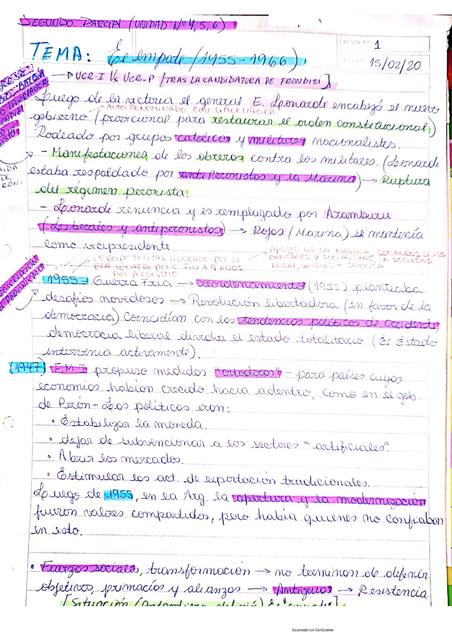 SEGUNDO PARCIAL (UNIDAD Nº 4, 5, 6)
1
TEMA: El empate (1955-1966)
15/02/20
→ UCR-I Vs UCR-P (TRAS LA CANDIDATURA DE FRONDIZI]
Luego de la victoria el general E. Leonardi encabezó el nuevo
gobierno (provisional para restaurar el orden constitucional)
Rodeado por grupos católicos y militares nacionalistas.
- Manifestaciones de los obreros contra los militares. (Leonardi
estaba respaldado por antiperonistas y la Marina) → Ruptura
del régimen peronista.
- Leonardi renuncia y es remplazado por Aramburu
(Liberales y antiperonistas) → Rojas (Marina) se mantenía
como vicepresidente.
1955 - Guerra Fría → (1955) planteaba
desafíos novedosos → Revolución libertadora (en favor de la
democracia) Coincidían con las tendencias políticas de occidente
democracia liberal dividía el estado totalitario (Es Estado
intervenía activamente).
(1947) F.M.I propuso medidas "ortodoxas" - para países cuyas
economías habían crecido hacia adentro, como en el gob.
de Perón - Las políticas eran:
• Estabilizar la moneda.
• dejar de subvencionar a los sectores "artificiales".
• Abrir los mercados.
• Estimular las act. de exportación tradicionales.
Luego de 1955, en la Arg. la apertura y la modernización
fueron valores compartidos, pero había quienes no confiaban
en esto.
• Fuerzas sociales, transformación → no terminan de definir
objetivos, primacías y alianzas → Antiguos → Resistencia
Escaneado con CamScanner